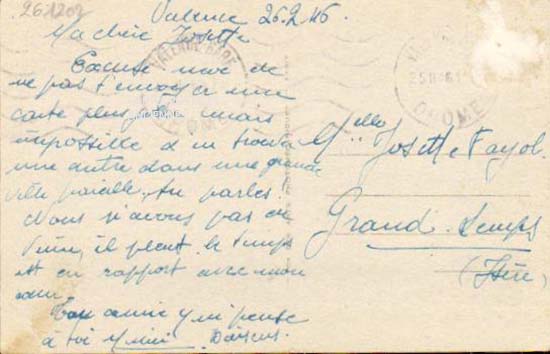 261209
Valence 26.2.46.
Ma chère Josette
Excuse moi de
ne pas t'envoyer une
carte plus mais
impossible d'en trouver
une autre dans une grande
ville pareille, tu parles.
Nous n'avons pas de
il pleut le temps
est en rapport avec mon
Ton amie qui pense
à toi Mimi. Baisers.
VALENCE GARE
DROME
DROME
Melle Josette Fayol.
Grand-Lemps
(Isère)